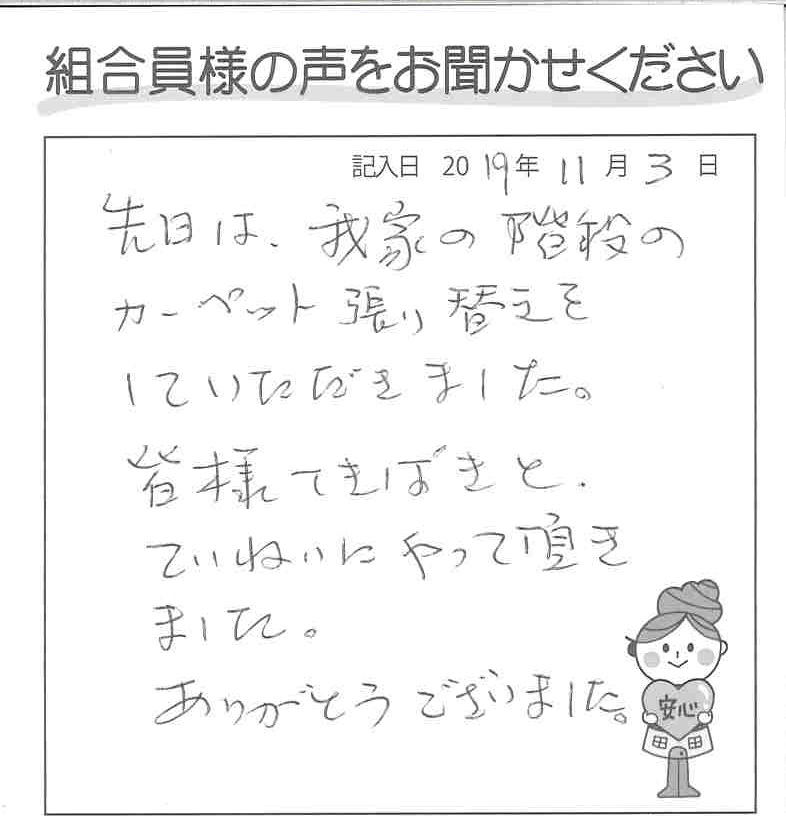 組合員様の声をお聞かせください
記入日 2019年 11月 3日
先日は、我家の階段の
カーペット張り替えを
していただきました。
皆様てきぱきと、
ていねいにやって頂き
ました。
ありがとうございました。
安心